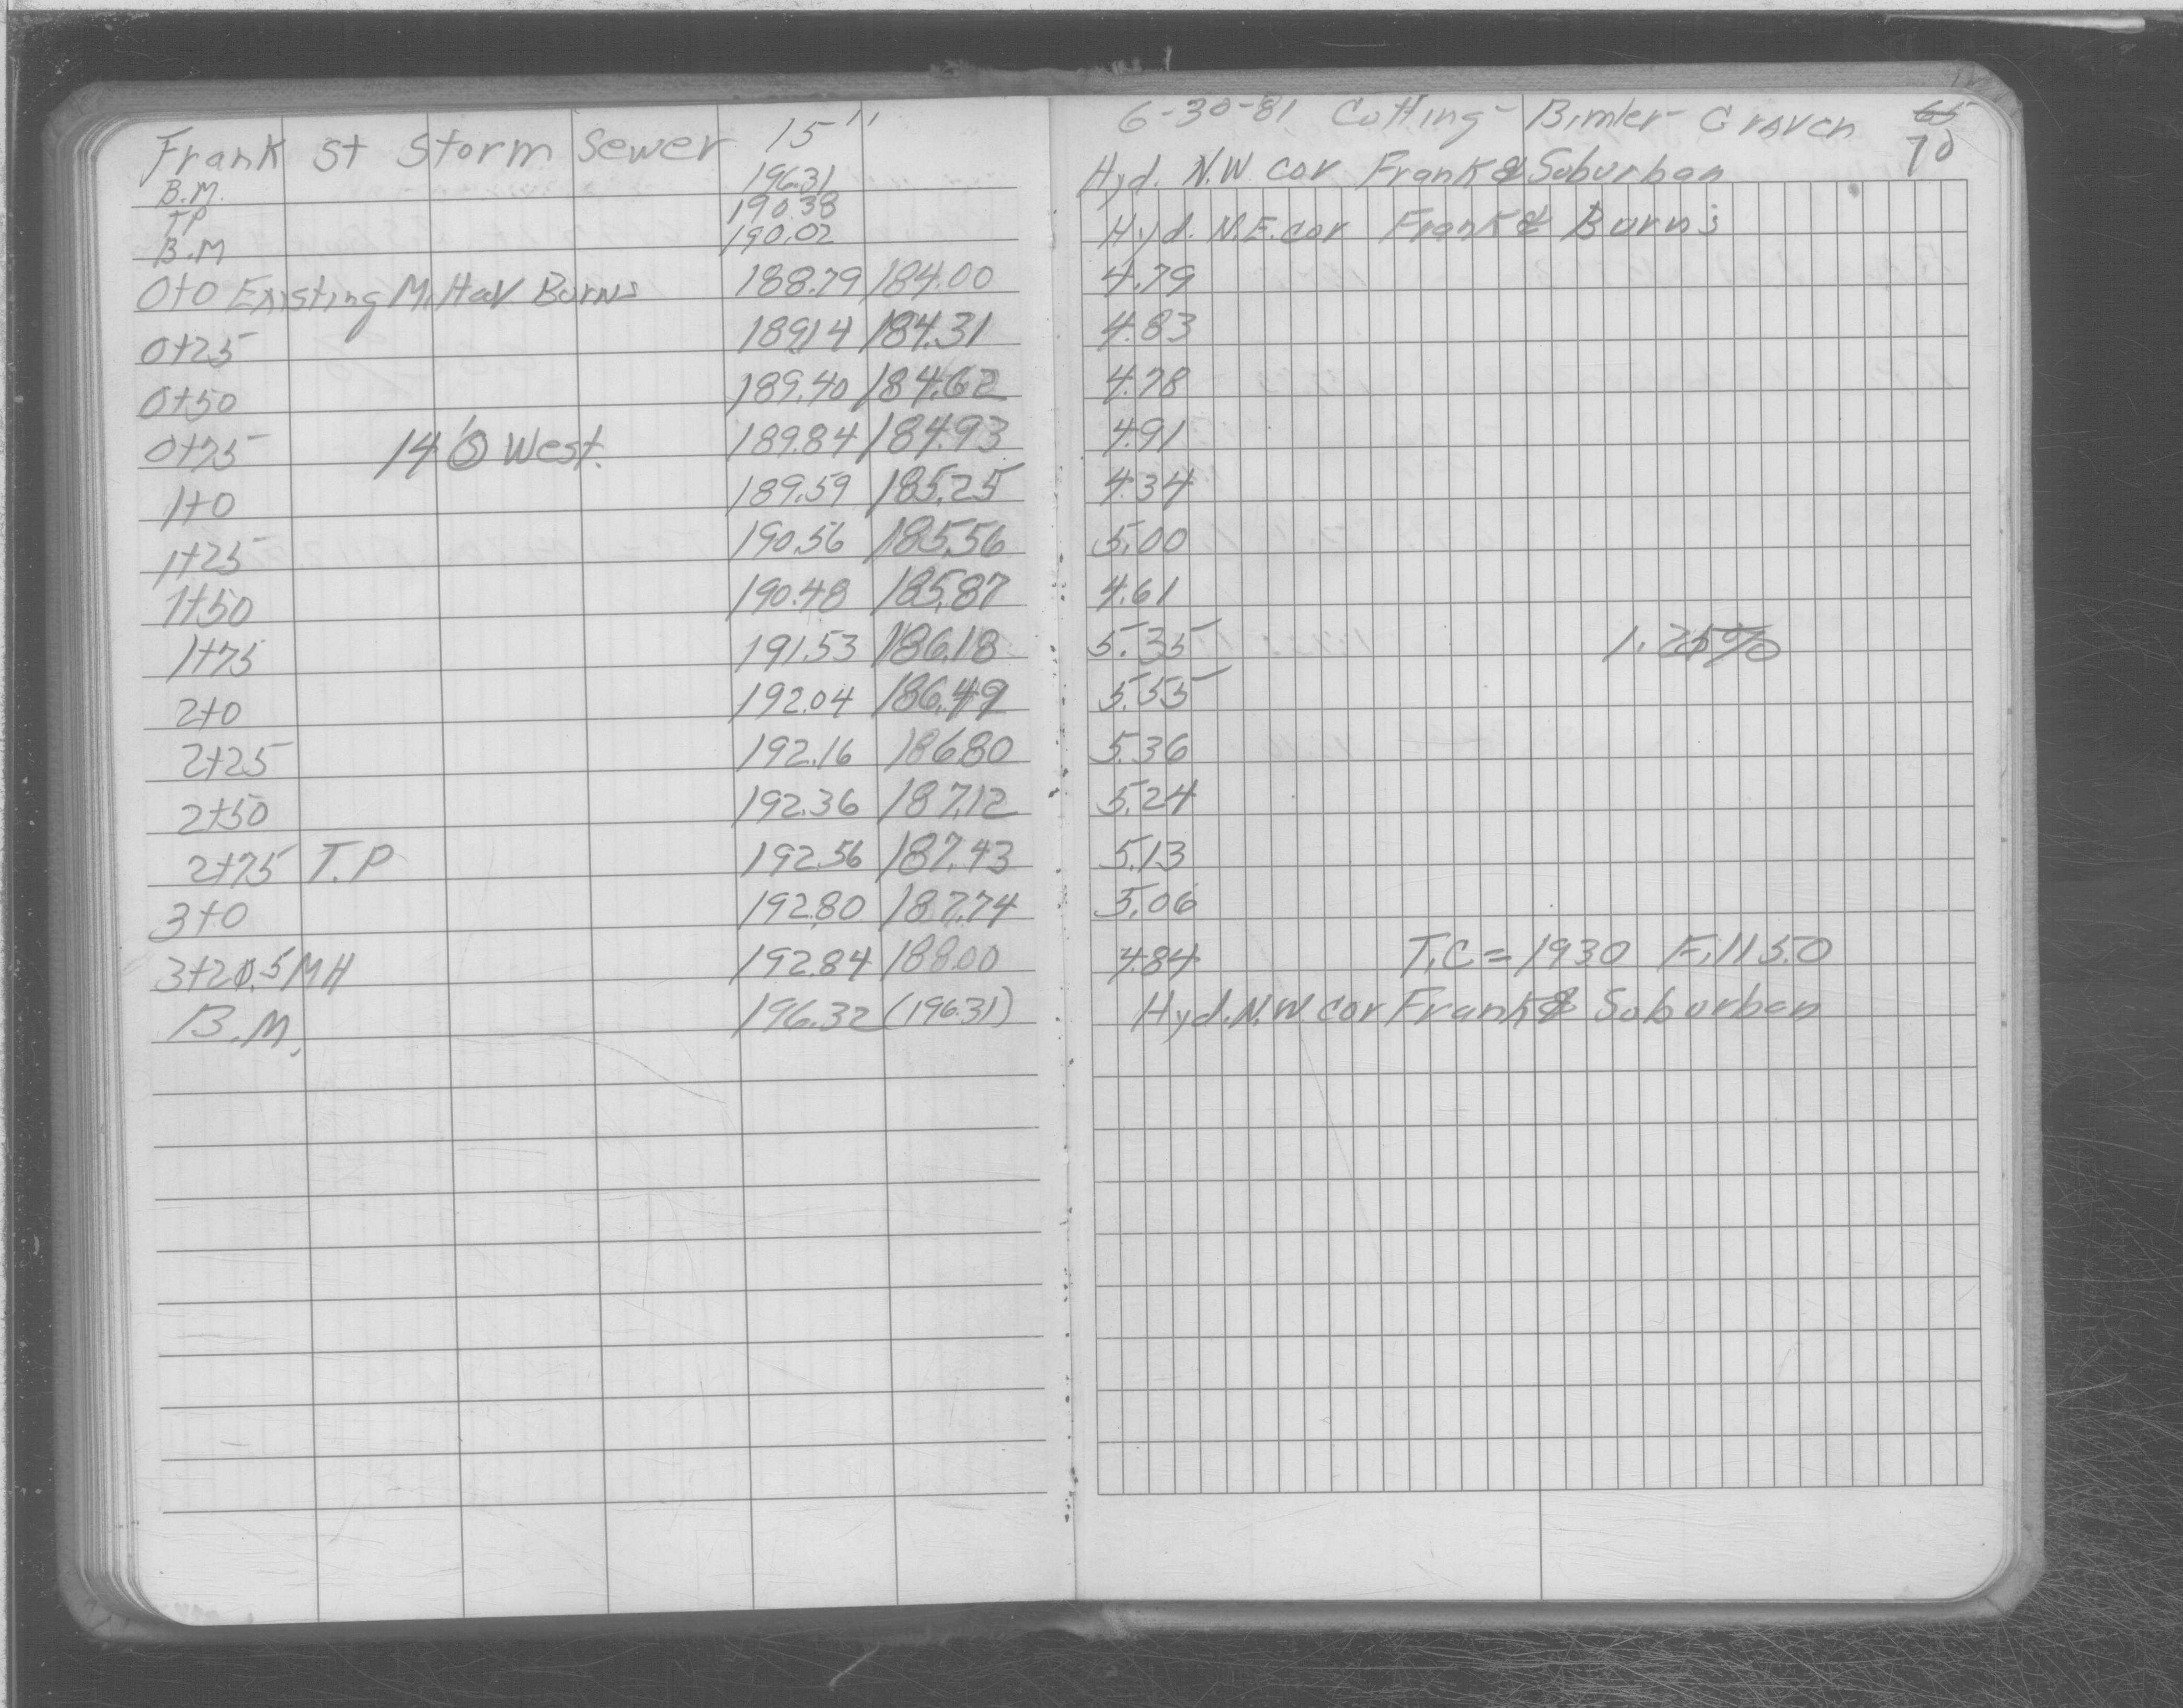 Frank St Storm Sewer 15"
B.M. 196.31
TP 190.38
B.M 190.02
0+0 Existing M.H at Burns 188.79 184.00
0+25 189.14 184.31
0+50 189.40 184.62
0+75 14' O West. 189.84 184.93
1+0 189.59 185.25
1+25 190.56 185.56
1+50 190.48 185.87
1+75 191.53 186.18
2+0 192.04 186.49
2+25 192.16 186.80
2+50 192.36 187.12
2+75 T.P 192.56 187.43
3+0 192.80 187.74
3+20.5 MH 192.84 188.00
B.M. 196.32 (196.31)
6-30-81 Cotting- Bimler- Craven 65
70
Hyd. N.W. cor Frank & Suburban
Hyd. N.E. cor Frank & Burns
4.79
4.83
4.78
4.91
4.34
5.00
4.61
5.35 1.25%
5.55
5.36
5.24
5.13
5.06
4.84 T.C = 1930 Fill 5.0
Hyd. N.W. cor Frank & Suburban